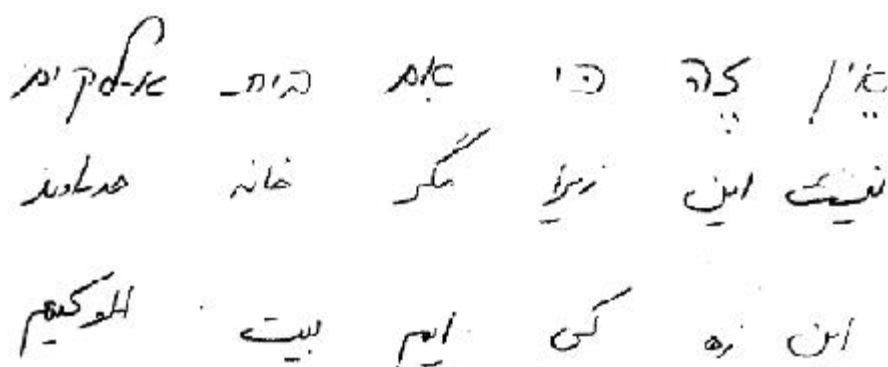 אֵין זֶה כי אִם בית א-לקים
نیست این زیرا مگر خانه خداوند
این زه کی ایم بیت الوکیم